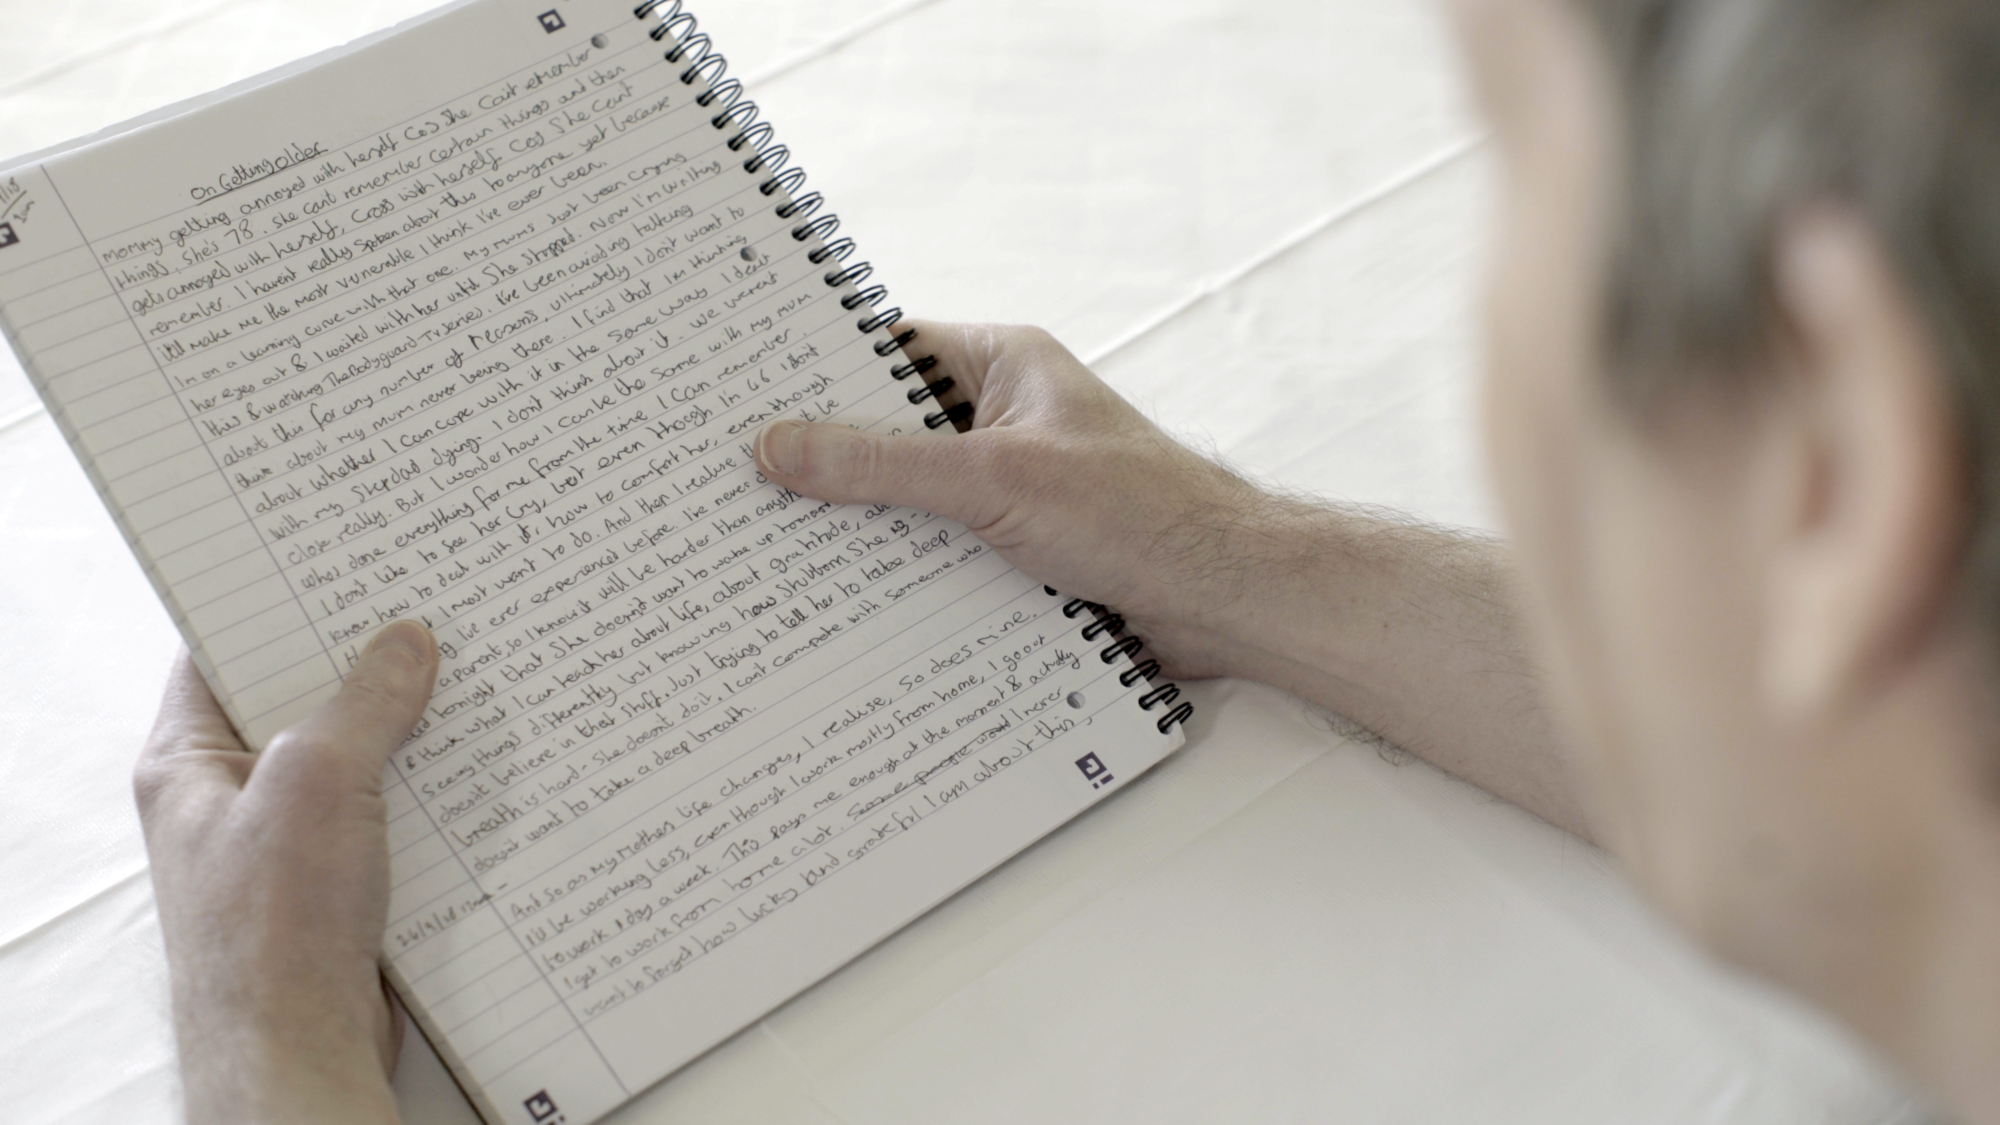 On Getting older
mommy getting annoyed with herself cos she cant remember
things, she's 78. She cant remember certain things and then
gets annoyed with herself, cross with herself cos she cant
remember. I havent really spoken about this to anyone yet because
it'll make me the most vulnerable I think I've ever been.
Im on a learning curve with that one. My mums just been crying
her eyes out & I waited with her until she stopped. Now I'm writing
this & watching The Bodyguard TV series. I've been avoiding talking
about this for any number of reasons, ultimately I dont want to
think about my mum never being there. I find that im thinking
about whether I can cope with it in the same way I dealt
with my Stepdad dying. I dont think about it. We werent
close really. But I wonder how I can be the same with my mum
whos done everything for me from the time I can remember.
I dont like to see her cry, but even though I'm 46 I dont
know how to deal with it, how to comfort her, even though
I most want to do. And then I realise it be
I've ever experienced before. I've never
a parent, so I know it will be harder than
tonight that she doesnt want to wake up
& think what I can teach her about life, about gratitude,
Seeing things differently but knowing how stubborn she is
doesnt believe in that stuff. Just trying to tell her to take deep
breath is hard - She doesnt do it. I cant compete with someone who
doesnt want to take a deep breath.
26/9/18
And so as my Mothers life changes, I realise, so does mine.
I'll be working less, even though I work mostly from home, I go out
to work 1 day a week. This pays me enough at the moment & actually
I get to work from home a lot. Some people would I never
want to forget how lucky and grateful I am about this,